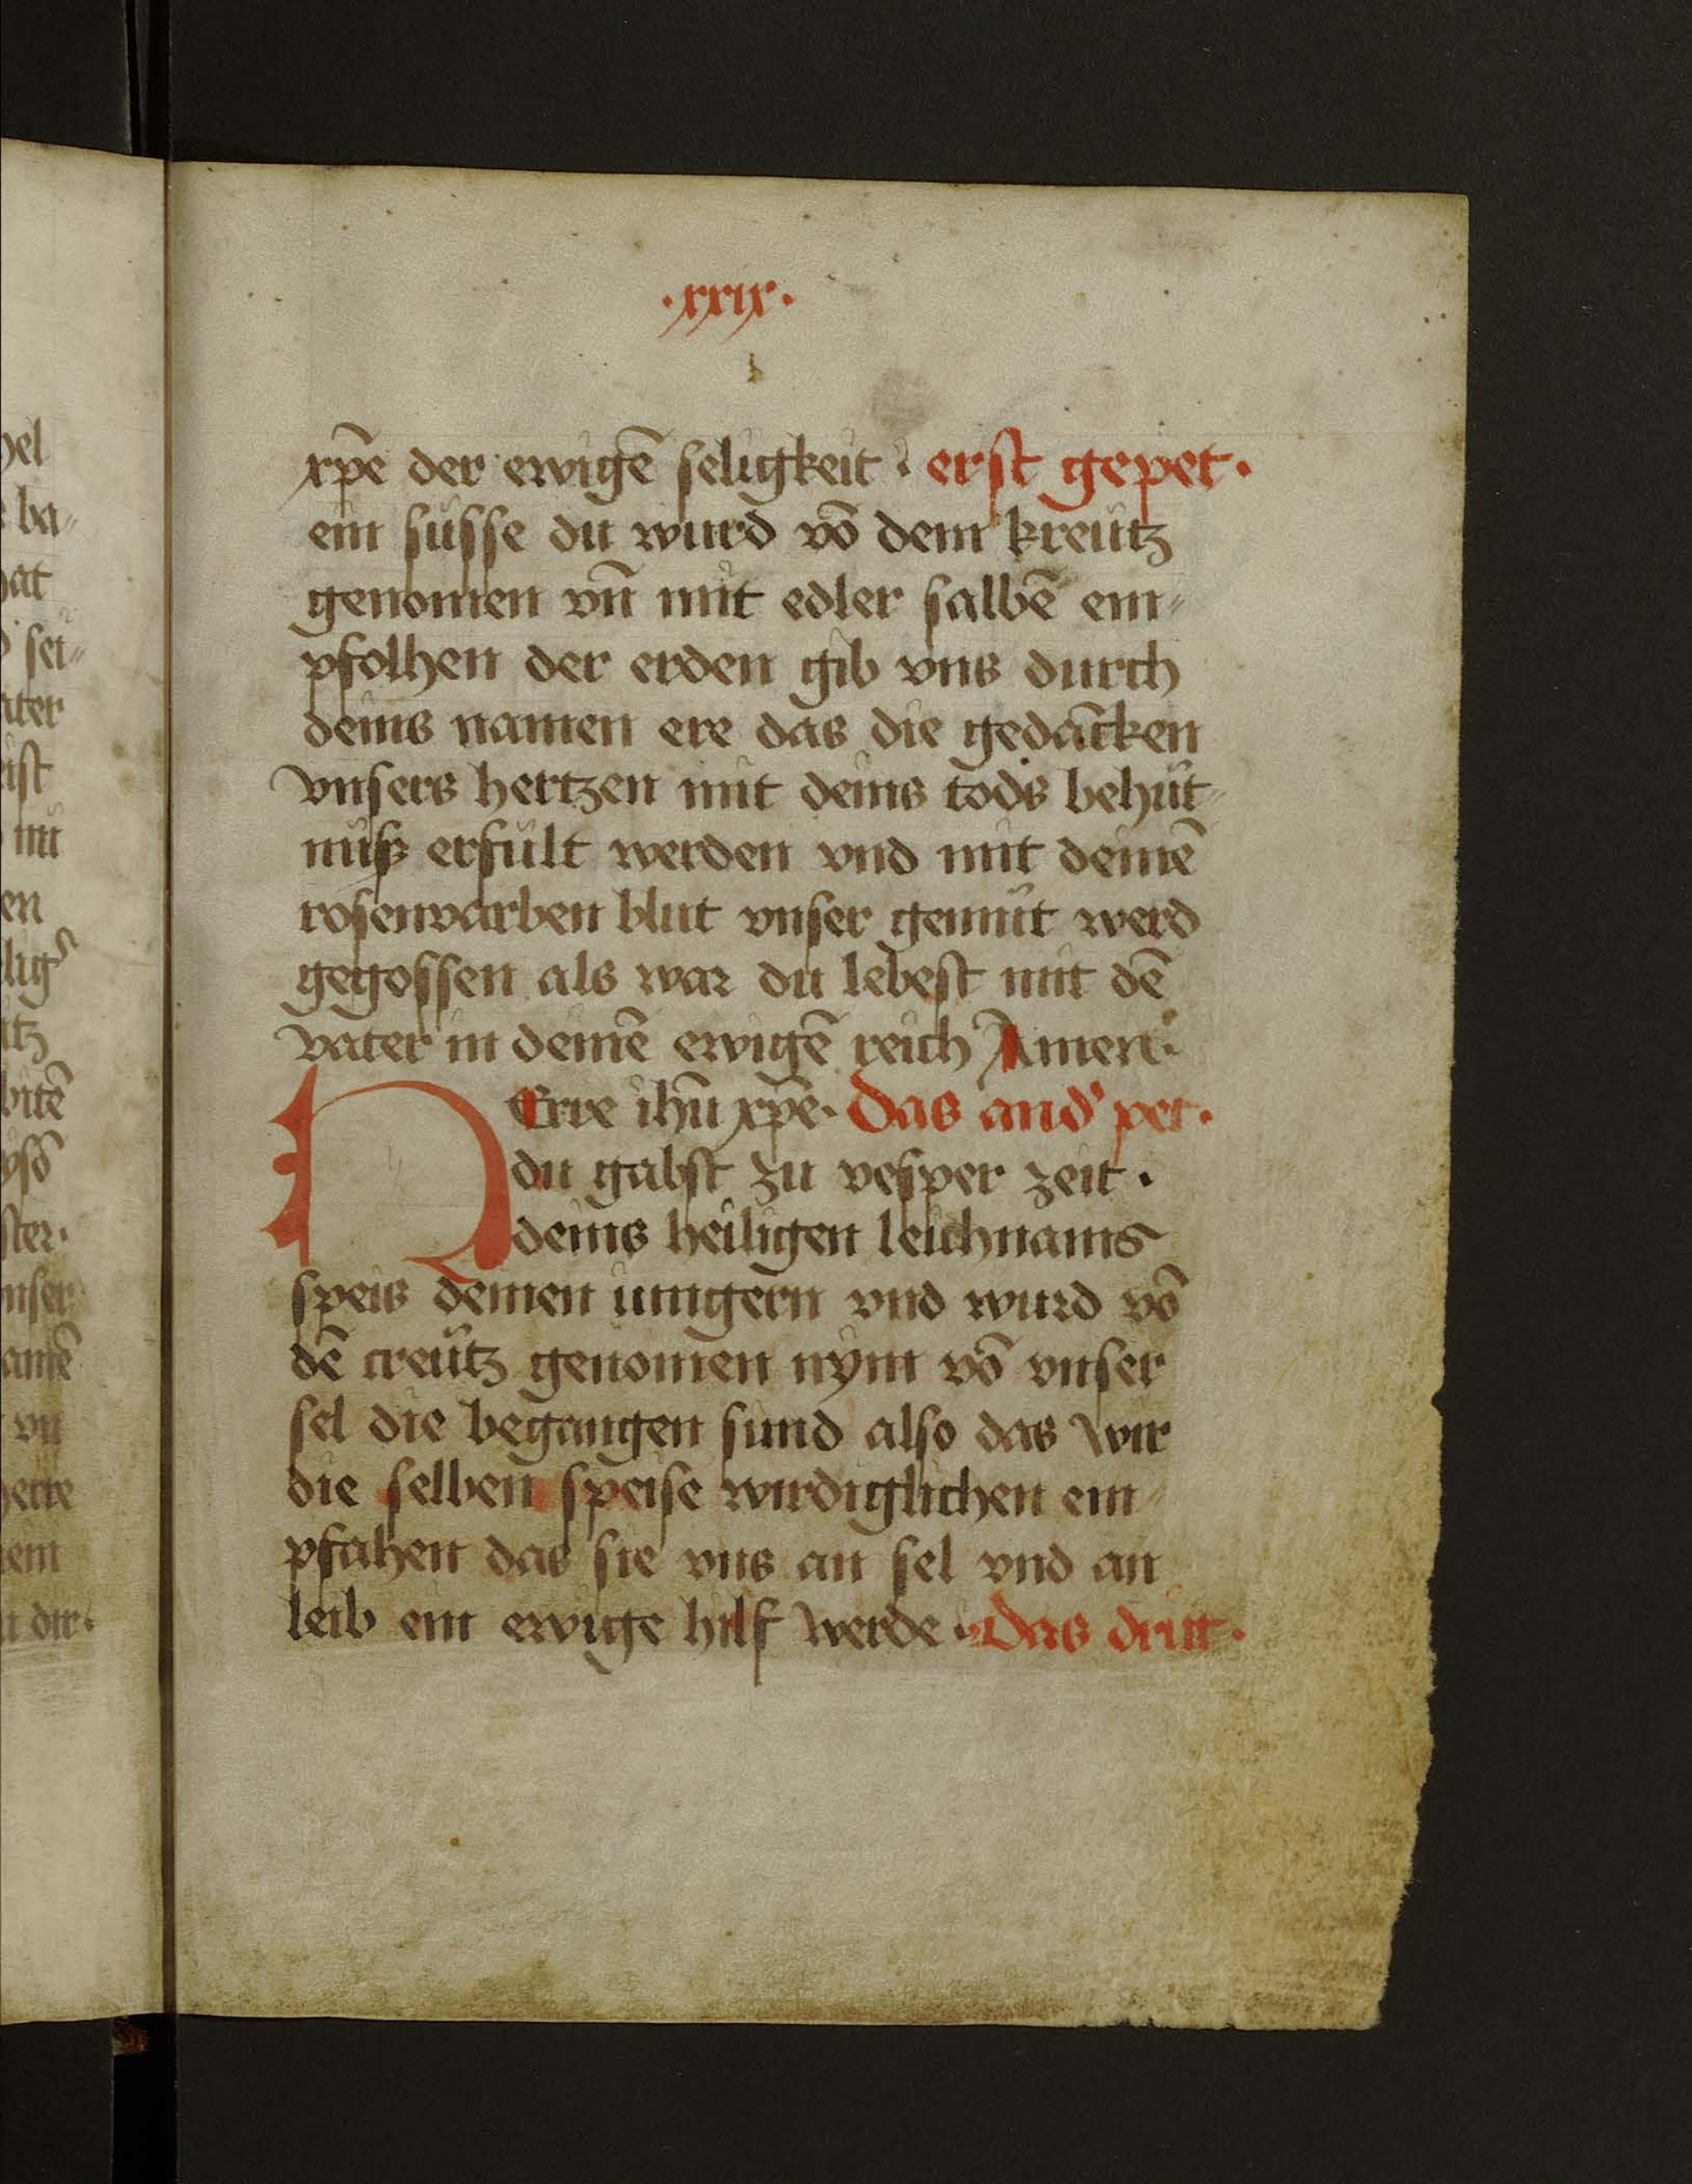 ·xxix·
xp̄e der ewigē seligkeit · erst gepet·
ein süsse du wurd vō dem kreütz
genomen vn̄ mit edler salbē em⸗
pfolhen der erden gib vns durch
deins namen ere das die gedācken
vnsers hertzen mit deins tods behüt⸗
nüß erfült werden vnd mit deinē
rosenvarben blut vnser gemüt werd
gegossen als war du lebest mit dē
vater in deinē ewigē reich Amen·
HErre ihū xp̄e· Das and' pet·
du gabst zu vesper zeit ·
deins heiligen leichnams
speis deinen iungern vnd wurd vō
dē creütz genomen nym vō vnser
sel die begangen sund also das wir
die selben speise wirdiglichen em
pfahen das sie vns an sel vnd an
leib ein ewige hilf werde · Das drit·